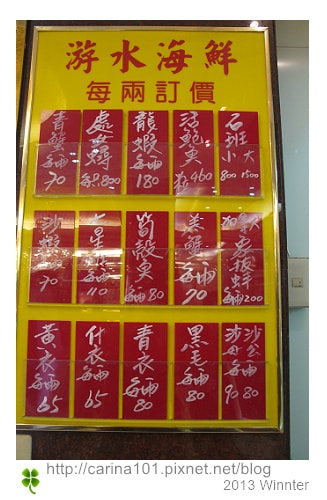 游水海鮮
每兩訂價
青蟹每兩70
處女蟳每只800
龍蝦每兩180
活鮑魚隻460
石斑小大800 1500
沙蝦每兩90
七星斑每兩110
筍殼魚每兩80
每兩90
東拔蚌每兩200
黃衣每兩65
什衣每兩65
青衣每兩80
黑毛每兩80
沙母沙公每兩90 80
http://carina101.pixnet.net/blog
2013 Winnter